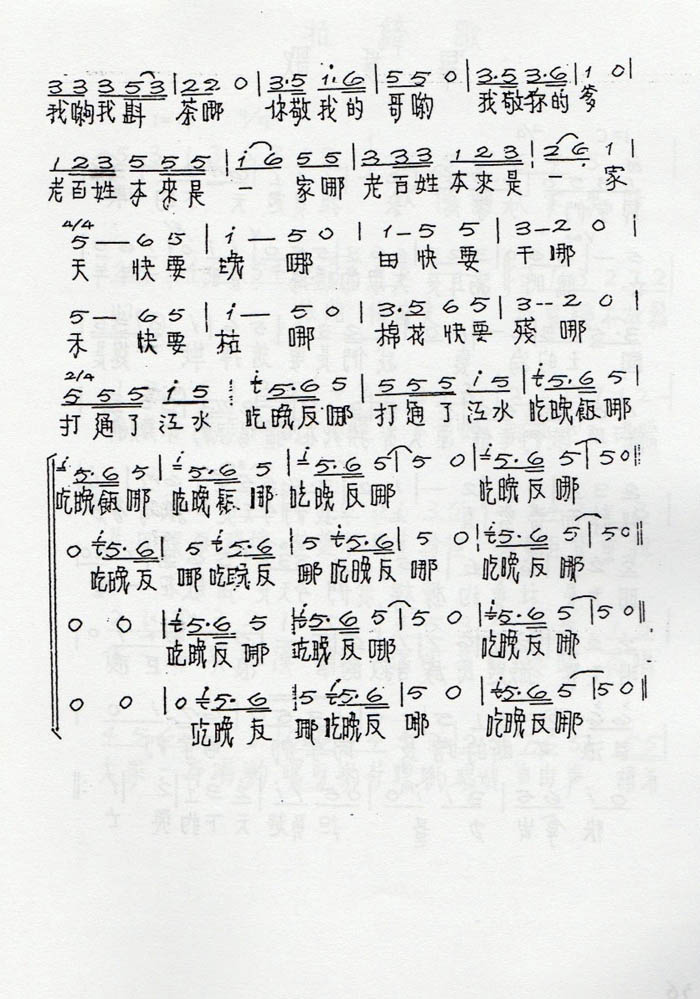 3 3 3 5 3 | 2 2 0 | 3·5 i·6 | 5 5 0 | 3·5 3·6 | 1 0 |
我喲我斟 茶哪 你敬我的 哥喲 我敬你的爹
1 2 3 5 5 5 | i 6 5 5 | 3 3 3 1 2 3 | 2 6 1 |
老百姓本來是 一 家哪 老百姓本來是 一 家
4/4
5 — 6 5 | i — 5 0 | 1 — 5 5 | 3 — 2 0 |
天 快要 哪 田 快要 干 哪
5 — 6 5 | i — 5 0 | 3·5 6 5 | 3 -- 2 0 |
禾 快要 枯 哪 棉花快要 殘 哪
2/4
5 5 5 i 5 | i 5·6 5 | 5 5 5 i 5 | i 5·6 5 |
打通了江水 吃晚反哪 打通了江水 吃晚飯哪
i 5·6 5 | i 5·6 5 | i 5·6 5 | 5 0 | i 5·6 5 | 5 0 ‖
吃晚飯哪 吃晚 哪 吃晚反哪 吃晚反哪
0 i 5·6 | 5 i 5·6 | 5 i 5·6 | 5 0 | i 5·6 5 | 5 0 ‖
吃晚反 哪吃晚反 哪吃晚反 哪 吃晚反哪
0 0 | i 5·6 5 | i 5·6 5 | 5 0 | i 5·6 5 | 5 0 ‖
吃晚反哪 吃晚反哪 吃晚反哪
0 0 | 0 i 5·6 | 5 i 5·6 | 5 0 | i 5·6 5 | 5 0 ‖
吃晚反 哪吃晚反 哪 吃晚反哪